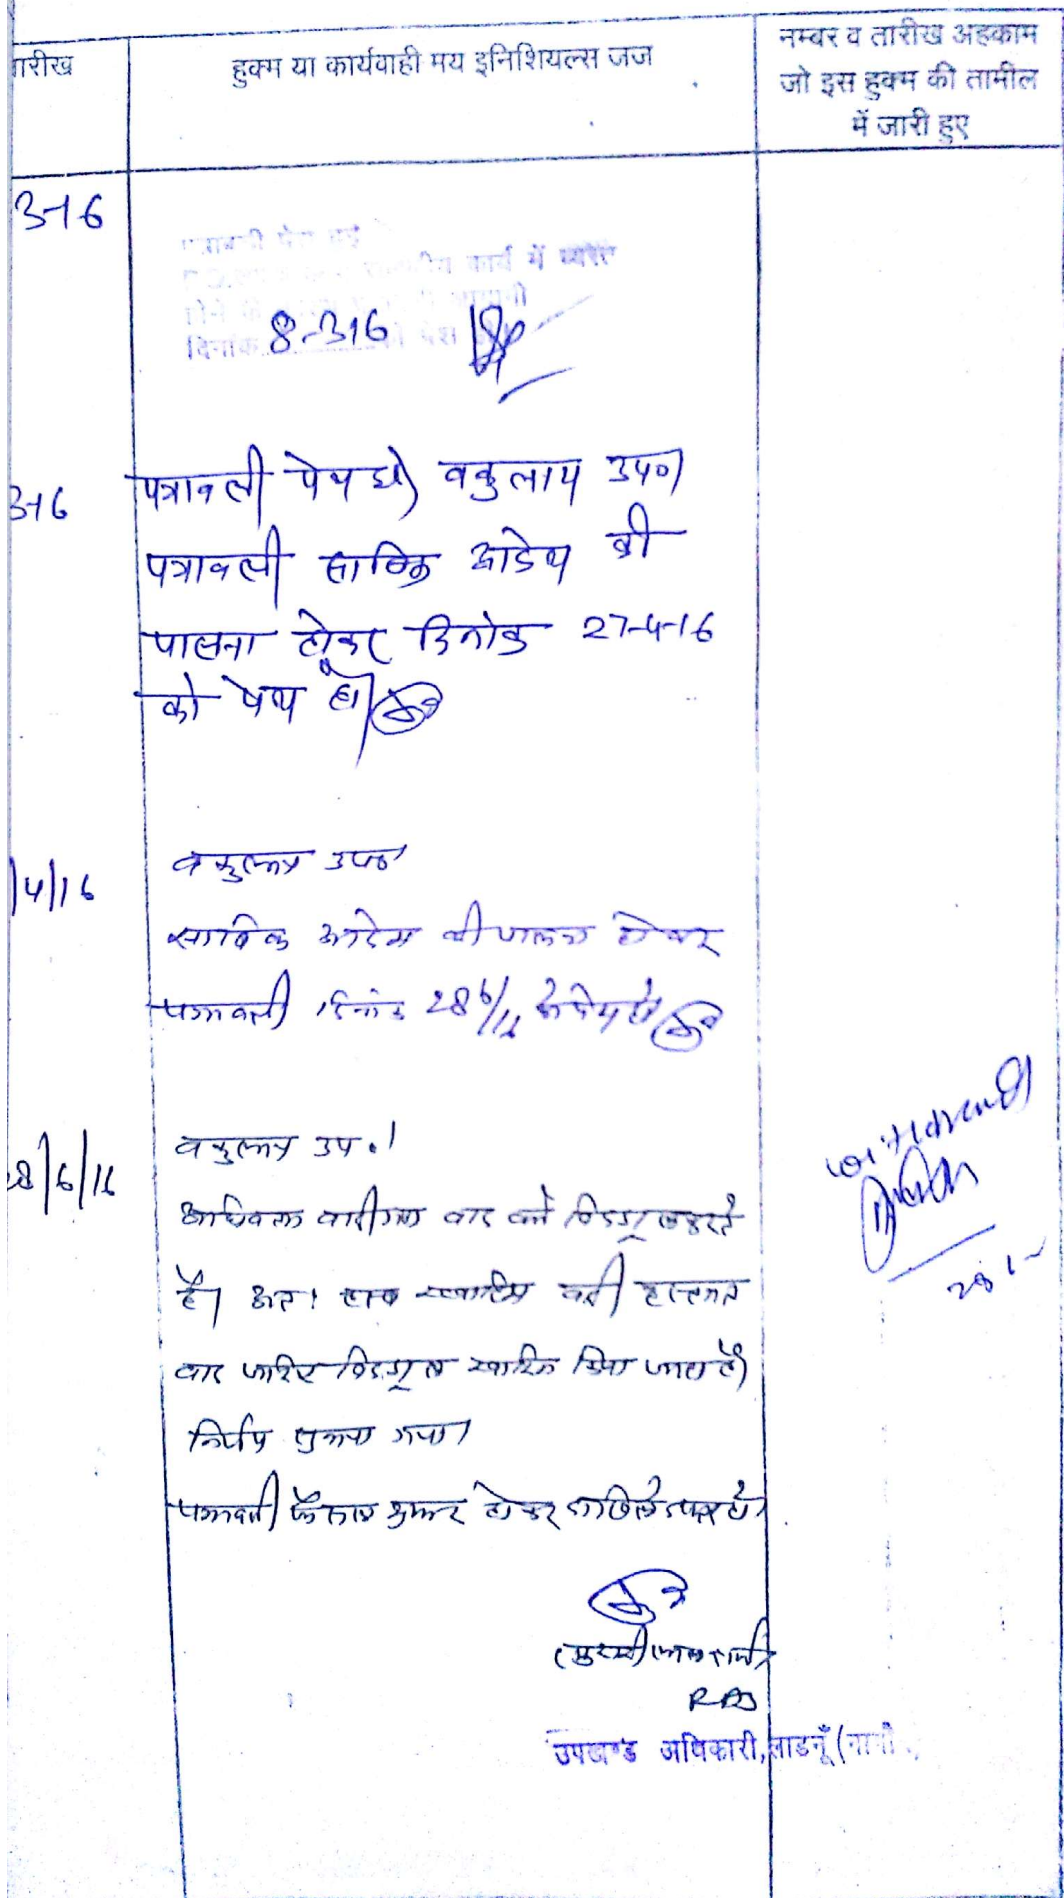 तारीख
हुक्म या कार्यवाही मय इनिशियल्स जज
नम्बर व तारीख अहकाम
जो इस हुक्म की तामील
में जारी हुए
3-16
पत्रावली पेश हुई
कार्य में व्यस्त
होने के आगामी
दिनांक 8-3-16 को पेश
3-16
पत्रावली पेश हो वकुलाय उप०।
पत्रावली साबिक आदेश की
पालना होकर दिनांक 27-4-16
को पेश हो।
/4/16
वकुलाय उप०
साबिक आदेश की पालना होकर
पत्रावली दिनांक 28/6/16 को पेश हो
28/6/16
वकुलाय उप.।
अधिवक्ता वादीगण वाद को विड्रा करते
है। अतः वादी हस्तगत
वाद जरिए विड्रा खारिज किया जाता है।
निर्णय सुनाया गया।
पत्रावली फैसल शुमार होकर दाखिल दफ्तर हो।
RAS
उपखण्ड अधिकारी, लाडनूँ (नागौ